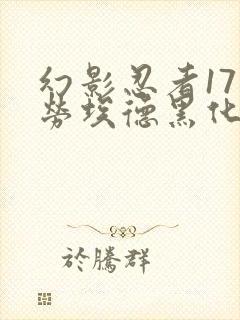 幻影忍者17
勞埃德黑化
於騰群